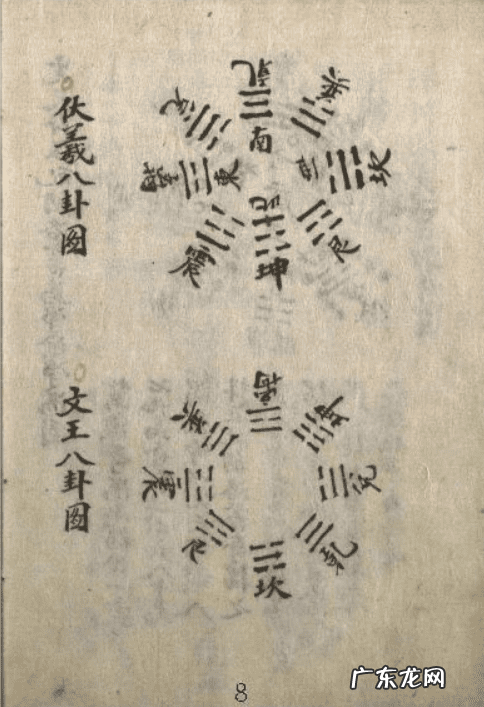 伏羲八卦图
乾
南
兑
巽
離
東
西
坎
震
艮
北
坤
文王八卦图
離
巽
坤
震
兑
艮
乾
坎
8
广东龙网